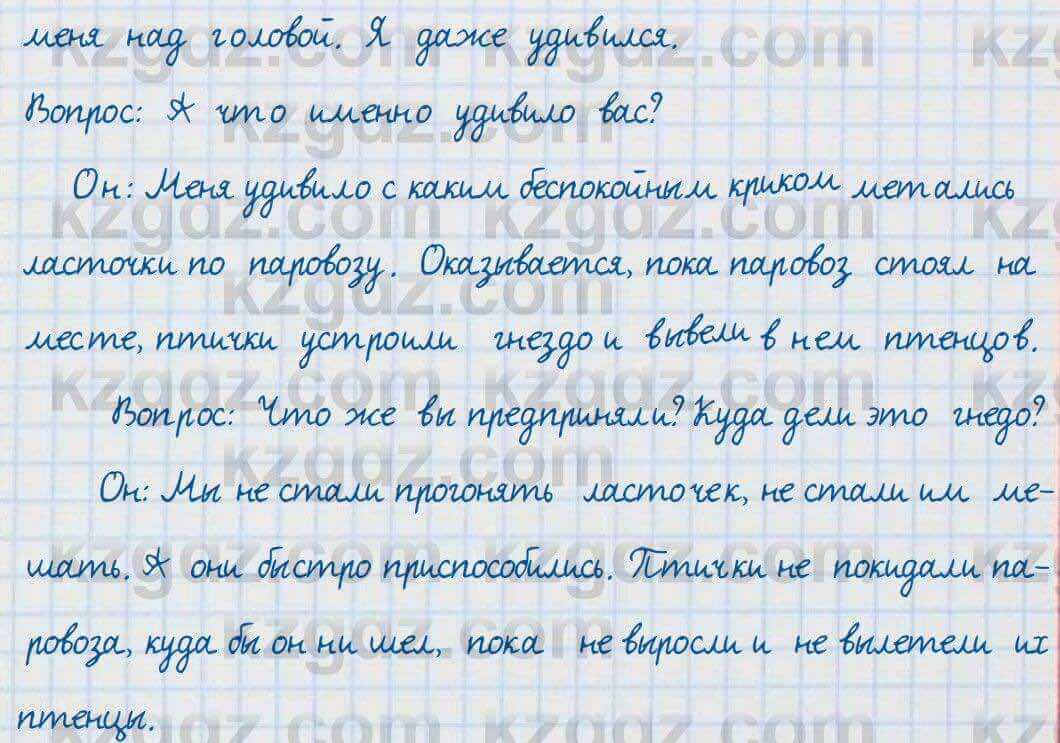 меня над головой. Я даже удивился.
Вопрос: А что именно удивило вас?
Он: Меня удивило с каким беспокойным криком метались
ласточки по паровозу. Оказывается, пока паровоз стоял на
месте, птички устроили гнездо и вывели в нем птенцов.
Вопрос: Что же вы предприняли? Куда дели это гнедо?
Он: Мы не стали прогонять ласточек, не стали им ме-
шать. А они быстро приспособились. Птички не покидали па-
ровоза, куда бы он ни шел, пока не выросли и не вылетели их
птенцы.